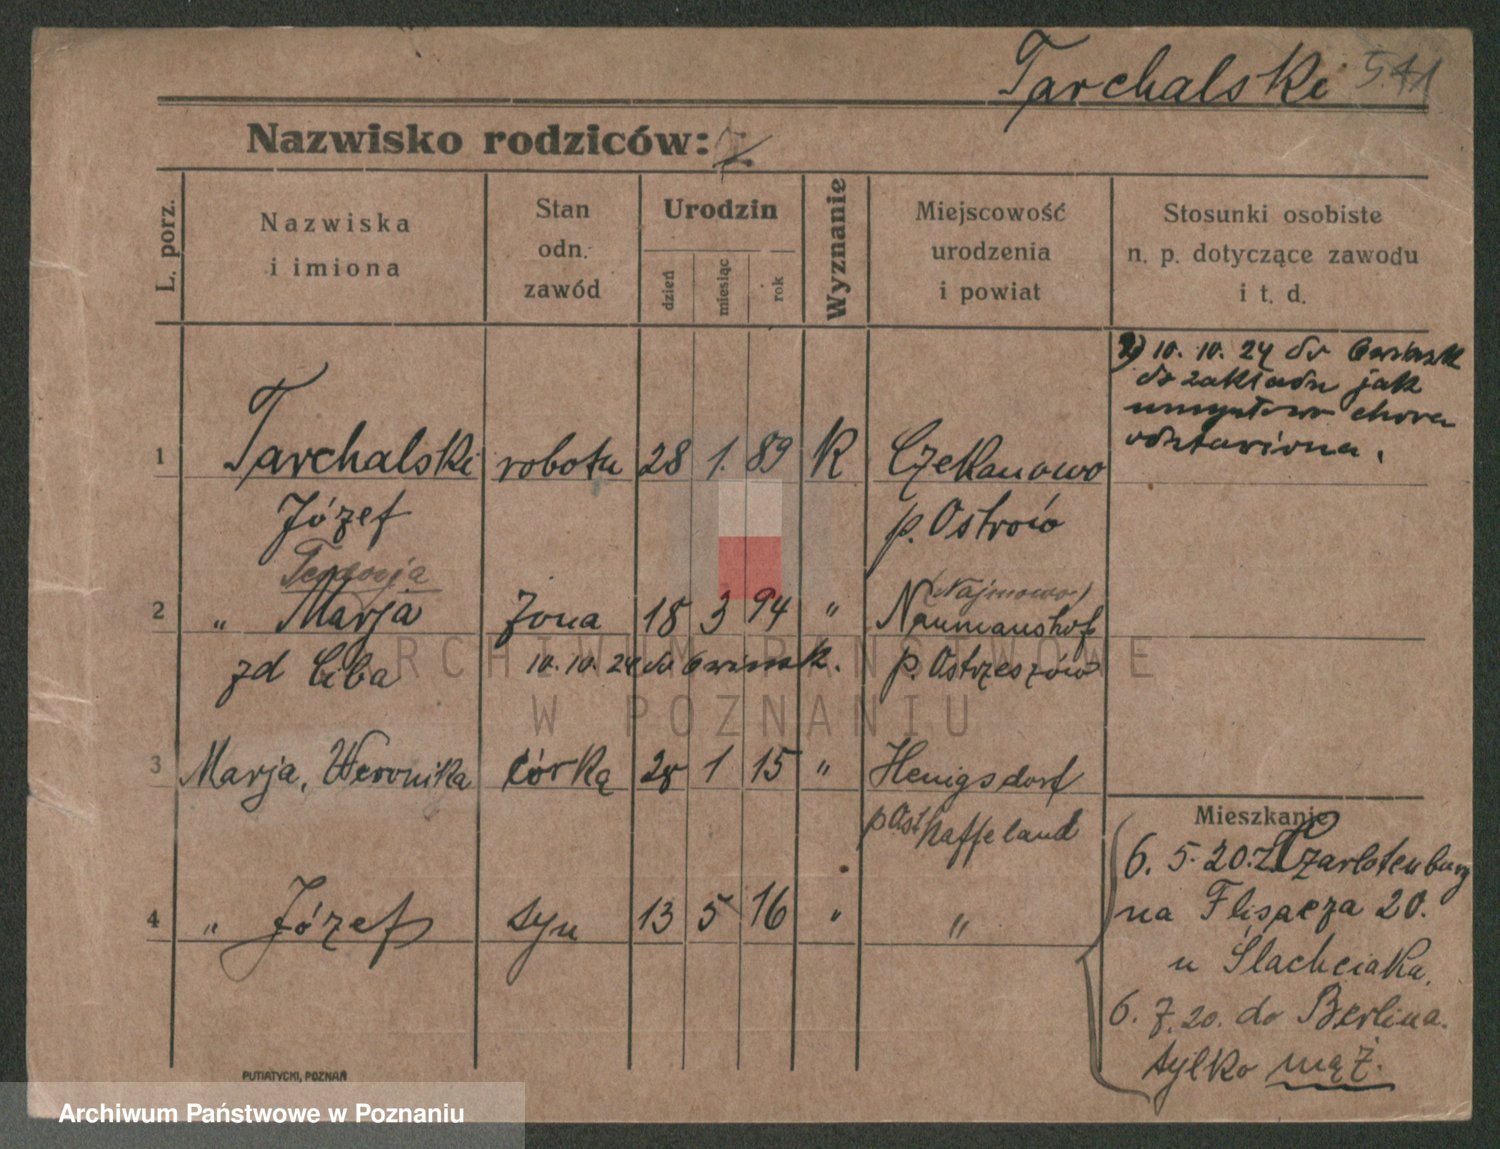 Tarchalski 541
Nazwisko rodziców:
L. porz.
Nazwiska
i imiona
Stan
odn.
zawód
Urodzin
dzień
miesiąc
rok
Wyznanie
Miejscowość
urodzenia
i powiat
Stosunki osobiste
n. p. dotyczące zawodu
i t. d.
2) 10. 10. 24 do Owinsk
do zakładu jak
umysłowo chora
odstawiona.
1 Tarchalski robotn 28 1. 89 K Czekanowo
Józef p. Ostrów
Teodozja (Najmowo)
2 „ Marja żona 18 3 94 „ Naumanshof
zd 10. 10. 24 do Owinsk. p. Ostrzeszów
3 Marja, Weronika córka 28 1 15 „ Henigsdorf
p Ost haffeland
4 „ Józef syn 13 5 16 „ „
Mieszkanie
6. 5. 20. z Szarlotenburg
na Flisacza 20.
u Ślachciaka.
6. 7. 20. do Berlina.
tylko mąż.
PUTIATYCKI, POZNAŃ
ARCHIWUM PAŃSTWOWE
W POZNANIU
Archiwum Państwowe w Poznaniu